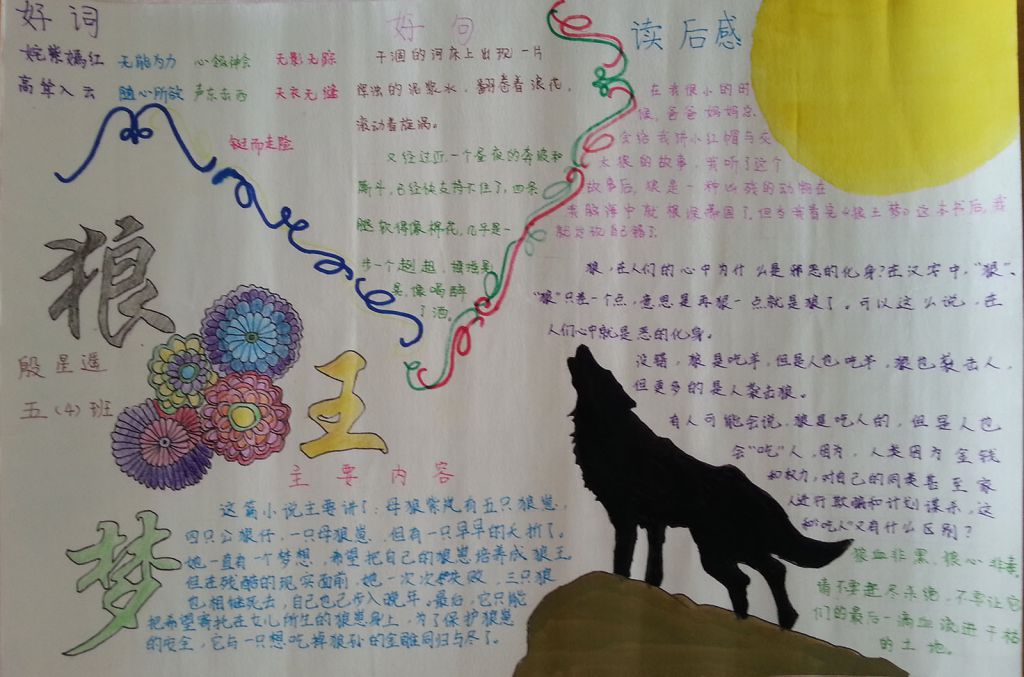 好词
姹紫嫣红 无能为力 心领神会 无影无踪
高耸入云 随心所欲 声东击西 天衣无缝
铤而走险
好句
干涸的河床上出现一片
浑浊的泥浆水，翻卷着浪花，
滚动着旋涡。
又经过近一个昼夜的奔波和
厮斗，已经快支持不住了，四条
腿软得像棉花，几乎是一
步一个趔趄，
像喝醉
了酒。
读后感
在我很小的时
候，爸爸妈妈总
会给我讲小红帽与
大狼的故事，我听了这个
故事后，狼是一种凶残的动物在
我脑海中就根深蒂固了。但当我看完《狼王梦》这本书后，我
就发现自己错了。
狼，在人们的心中为什么是邪恶的化身？在汉字中，“狠”、
“狼”只差一个点，意思是再狠一点就是狼了。可以这么说，在
人们心中就是恶的化身。
没错，狼是吃羊，但是人也吃羊，狼也袭击人，
但更多的是人袭击狼。
有人可能会说，狼是吃人的，但是人也
会“吃”人，因为，人类因为金钱
和权力，对自己的同类甚至家
人进行欺骗和计划谋杀，这
和“吃人”又有什么区别？
狼血非黑，狼心非毒，
请不要赶尽杀绝，不要让它
们的最后一滴血流进干枯
的土地。
狼
王
梦
殷星遥
五（4）班
主要内容
这篇小说主要讲了：母狼紫岚有五只狼崽，
四只公狼仔，一只母狼崽，但有一只早早的夭折了。
她一直有一个梦想，希望把自己的狼崽培养成狼王
但在残酷的现实面前，她一次次失败，三只狼
也相继死去，自己也已步入晚年。最后，它只能
把希望寄托在女儿所生的狼崽身上，为了保护狼崽
的安全，它与一只想吃掉狼孙的金雕同归与尽了。